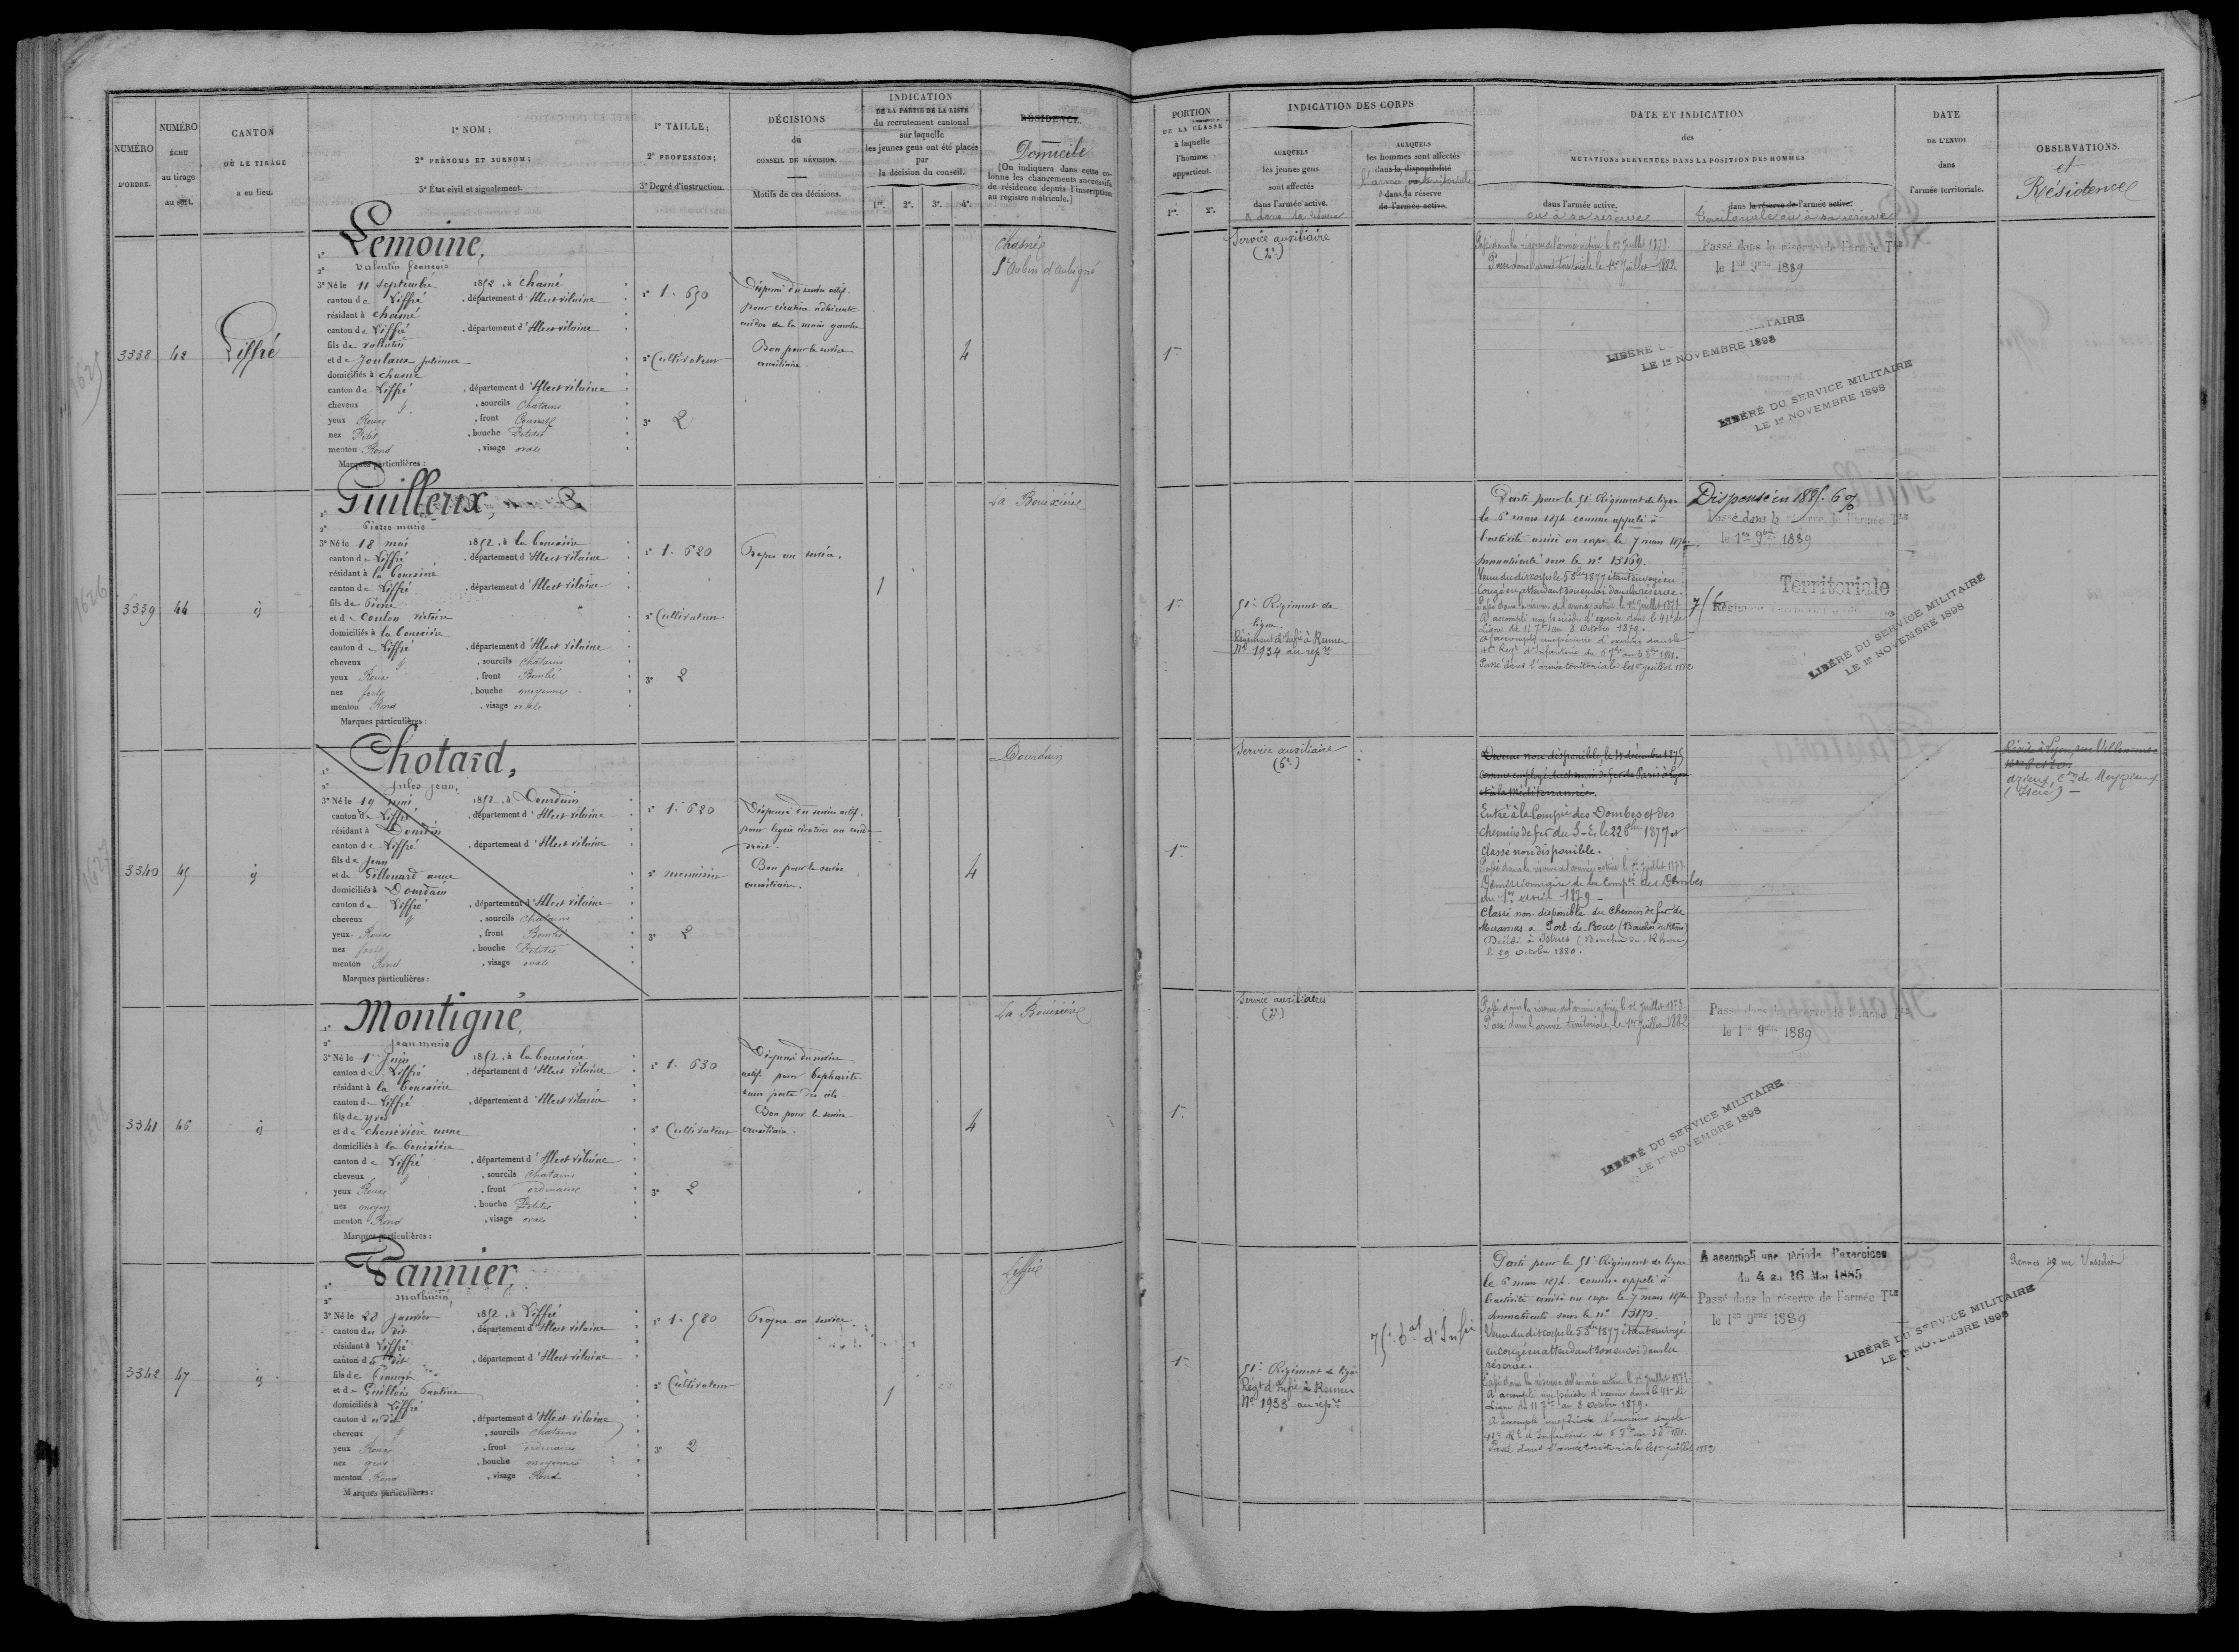 NUMÉRO
D'ORDRE.
NUMÉRO
ÉCHU
au tirage
au sort.
CANTON
OÙ LE TIRAGE
a eu lieu.
1° NOM;
2° PRÉNOMS ET SURNOM;
3° État civil et signalement.
1° TAILLE;
2° PROFESSION;
3° Degré d'instruction.
DÉCISIONS
du
CONSEIL DE RÉVISION.
Motifs de ces décisions.
INDICATION
DE LA PARTIE DE LA LISTE
du recrutement cantonal
sur laquelle
les jeunes gens ont été placés
par
la décision du conseil.
1re. 2e. 3e. 4e.
RÉSIDENCE.
Domicile
(On indiquera dans cette co-
lonne les changements successifs
de résidence depuis l'inscription
au registre matricule.)
PORTION
DE LA CLASSE
à laquelle
l'homme
appartient.
1re. 2e.
INDICATION DES CORPS
AUXQUELS
les jeunes gens
sont affectés
dans l'armée active.
AUXQUELS
les hommes sont affectés
dans la disponibilité
dans la réserve
de l'armée active.
DATE ET INDICATION
des
MUTATIONS SURVENUES DANS LA POSITION DES HOMMES
dans l'armée active.
ou à sa réserve
dans la réserve de l'armée active.
Territoriale ou à sa réserve
DATE
DE L'ENVOI
dans
l'armée territoriale.
OBSERVATIONS.
et
Résidence
3338 42 Liffré
1° Lemoine,
2° Valentin françois
3° Né le 11 septembre 1852, à Chasné
canton de Liffré, département d'Ille et vilaine
résidant à Chasné
canton de Liffré, département d'Ille et vilaine
fils de Valentin
et de Joulaux julienne
domiciliés à Chasné
canton de Liffré, département d'Ille et vilaine
cheveux, sourcils Chatains
yeux Roux, front Couvert
nez Petit, bouche Petite
menton Rond, visage ovale
Marques particulières :
1° 1. 650
2° Cultivateur
3° 2
Dispensé du service actif
pour cicatrice adhérente
au dos de la main gauche
Bon pour le service
auxiliaire.
4
Chasné
St Aubin d'Aubigné
1re
Service auxiliaire
(2e)
Passé dans la réserve de l'armée active le 1er Juillet 1878
Passé dans l'armée territoriale le 1er Juillet 1882
Passé dans la réserve de l'armée Tle
le 1er 9bre 1889
LIBÉRÉ
LE 1er NOVEMBRE 1898
LIBÉRÉ DU SERVICE MILITAIRE
LE 1er NOVEMBRE 1898
3339 44 id
1° Guilleux,
2° Pierre marie
3° Né le 18 mai 1852, à la bouexière
canton de Liffré, département d'Ille et vilaine
résidant à la bouexière
canton de Liffré, département d'Ille et vilaine
fils de Pierre
et de Coulon victoire
domiciliés à la bouexière
canton de Liffré, département d'Ille et vilaine
cheveux, sourcils chatains
yeux Roux, front Bombé
nez fort, bouche moyenne
menton Rond, visage ovale
Marques particulières :
1° 1. 620
2° Cultivateur
3° 2
Propre au service.
1
La Bouëxière
1re
51e Régiment de
ligne.
Régiment d'Infie à Rennes
No 1934 au repre
Parti pour le 51e Régiment de ligne
le 6 mars 1874 comme appelé à
l'activité arrivé au corps le 7 mars 1874.
Immatriculé sous le no 13169.
Venu dudit corps le 5 8bre 1877 étant envoyé en
Congé en attendant son envoi dans la réserve.
Passé dans la réserve de l'armée active le 1er Juillet 1878
A accompli une période d'exercice dans le 41e de
Ligne du 11 7bre au 8 octobre 1879.
A accompli une période d'exercice dans le
41e Regt d'Infanterie du 6 7bre au 3 8bre 1881.
Passé dans l'armée territoriale le 1er juillet 1882
Dispensé en 1885. 6%
Passé dans la réserve de l'armée Tle
le 1er 9bre 1889
75
Territoriale
LIBÉRÉ DU SERVICE MILITAIRE
LE 1er NOVEMBRE 1898
3340 45 id
1° Chotard,
2° Jules jean,
3° Né le 19 mai 1852, à Dourdain
canton de Liffré, département d'Ille et vilaine
résidant à Dourdain
canton de Liffré, département d'Ille et vilaine
fils de Jean
et de Gillouard anne
domiciliés à Dourdain
canton de Liffré, département d'Ille et vilaine
cheveux, sourcils Chatains
yeux Roux, front Bombé
nez fort, bouche Petite
menton Rond, visage ovale
Marques particulières :
1° 1. 620
2° menuisier
3° 2
Dispensé du service actif
pour légère cicatrice au coude
droit.
Bon pour le service
auxiliaire.
4
Dourdain
1re
Service auxiliaire
(6e)
Devenu non disponible, le 11 décembre 1875
comme employé du chemin de fer de Paris à Lyon
et à la Méditerrannée.
Entré à la Compie des Dombes et des
Chemins de fer du S-E, le 22 8bre 1877 et
classé non disponible.
Passé dans la réserve de l'armée active le 1er Juillet 1878
Démissionnaire de la Compie des Dombes
du 1er avril 1879 -
Classé non disponible du Chemin de fer de
Miramas à Port-de Bouc (Bouches du Rhône)
Décédé à Istres (Bouches-du-Rhône)
le 29 Octobre 1880.
Réside à Lyon, rue Villeneuve
Azieux, Con de Meyzieux
(Isère) -
3341 46 id
1° Montigné,
2° Jean marie
3° Né le 1er Juin 1852, à la bouexière
canton de Liffré, département d'Ille et vilaine
résidant à la bouexière
canton de Liffré, département d'Ille et vilaine
fils de yves
et de chenevière anne
domiciliés à la bouexière
canton de Liffré, département d'Ille et vilaine
cheveux, sourcils chatains
yeux Roux, front ordinaire
nez moyen, bouche Petite
menton Rond, visage ovale
Marques particulières :
1° 1. 630
2° Cultivateur
3° 2
Dispensé du service
actif pour blépharite
avec perte des cils
Bon pour le service
auxiliaire.
4
La Bouëxière
1re
Service auxiliaires
(2e)
Passé dans la réserve de l'armée active, le 1er Juillet 1878
Passé dans l'armée territoriale, le 1er Juillet 1882
Passé dans la réserve de l'armée Tle
le 1er 9bre 1889
LIBÉRÉ DU SERVICE MILITAIRE
LE 1er NOVEMBRE 1898
3342 47 id
1° Pannier,
2° Mathurin,
3° Né le 28 Janvier 1852, à Liffré
canton du dit, département d'Ille et vilaine
résidant à Liffré
canton du dit, département d'Ille et vilaine
fils de François
et de Guillois
domiciliés à Liffré
canton du dit, département d'Ille et vilaine
cheveux, sourcils chatains
yeux Roux, front ordinaire
nez gros, bouche moyenne
menton Rond, visage Rond
Marques particulières :
1° 1. 580
2° Cultivateur
3° 2
Propre au service
1
Liffré
1re
51e Régiment de ligne
Régt d'Infie à Rennes
No 1933 au repre
75e d'Infie
Parti pour le 51e Régiment de ligne
le 6 mars 1874. comme appelé à
l'activité arrivé au corps le 7 mars 1874.
Immatriculé sous le no 13170.
Venu dudit corps le 5 8bre 1877 étant envoyé
en congé en attendant son envoi dans la
réserve.
Passé dans la réserve de l'armée active le 1er Juillet 1878
A accompli une période d'exercice dans le 41e de
Ligne du 11 7bre au 8 octobre 1879.
A accompli une période d'exercice dans le
41e Rt d'Infanterie du 6 7bre au 3 8bre 1881.
Passé dans l'armée territoriale le 1er juillet 1882
A accompli une période d'exercices
du 4 au 16 Mai 1885
Passé dans la réserve de l'armée Tle
le 1er 9bre 1889
LIBÉRÉ DU SERVICE MILITAIRE
LE 1er NOVEMBRE 1898
Rennes rue Vasselot